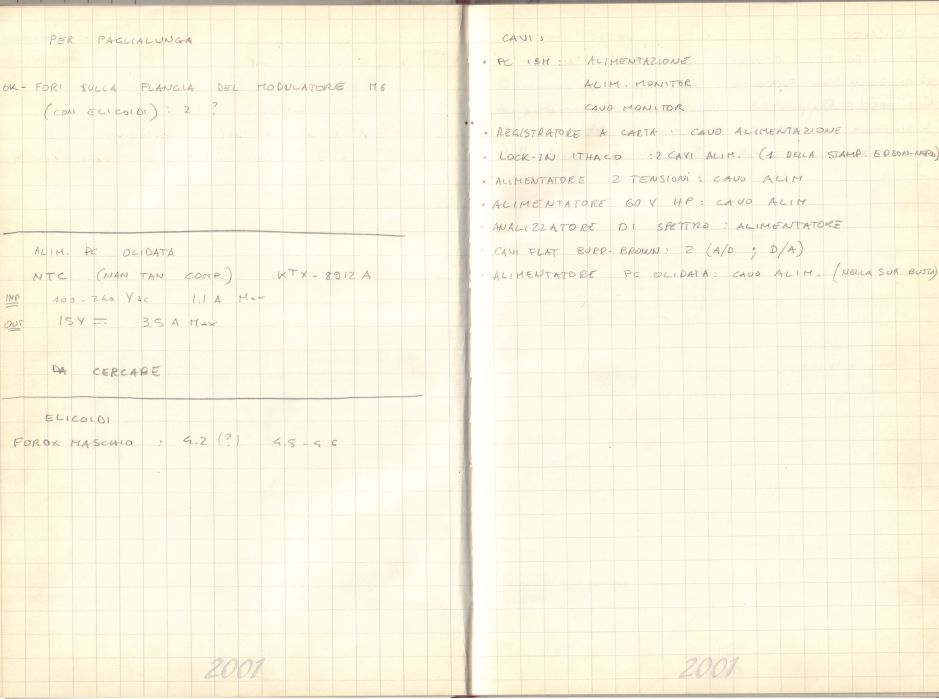 PER PAGLIALUNGA
OK- FORI SULLA FLANGIA DEL MODULATORE M6
(CON ELICOIDI) : 2 ?
ALIM. PC OLIDATA
NTC (NAN TAN COMP.) KTX-8912A
INP 100-240 Vac 1.1 A Max
OUT 15V 3.5 A Max
DA CERCARE
ELICOIDI
MASCHIO : 4.2 (?) 4.5 - 4.6
2001
CAVI :
· PC IBM : ALIMENTAZIONE
ALIM. MONITOR
CAVO MONITOR
· REGISTRATORE A CARTA : CAVO ALIMENTAZIONE
· LOCK-IN ITHACO : 2 CAVI ALIM. (1 DELLA STAMP. EPSON-NERO)
· ALIMENTATORE 2 TENSIONI : CAVO ALIM
· ALIMENTATORE 60 V HP : CAVO ALIM
· ANALIZZATORE DI SPETTRO : ALIMENTATORE
· CAVI FLAT BURR-BROWN : 2 (A/D ; D/A)
· ALIMENTATORE PC OLIDATA : CAVO ALIM. (NELLA SUA BUSTA)
2001